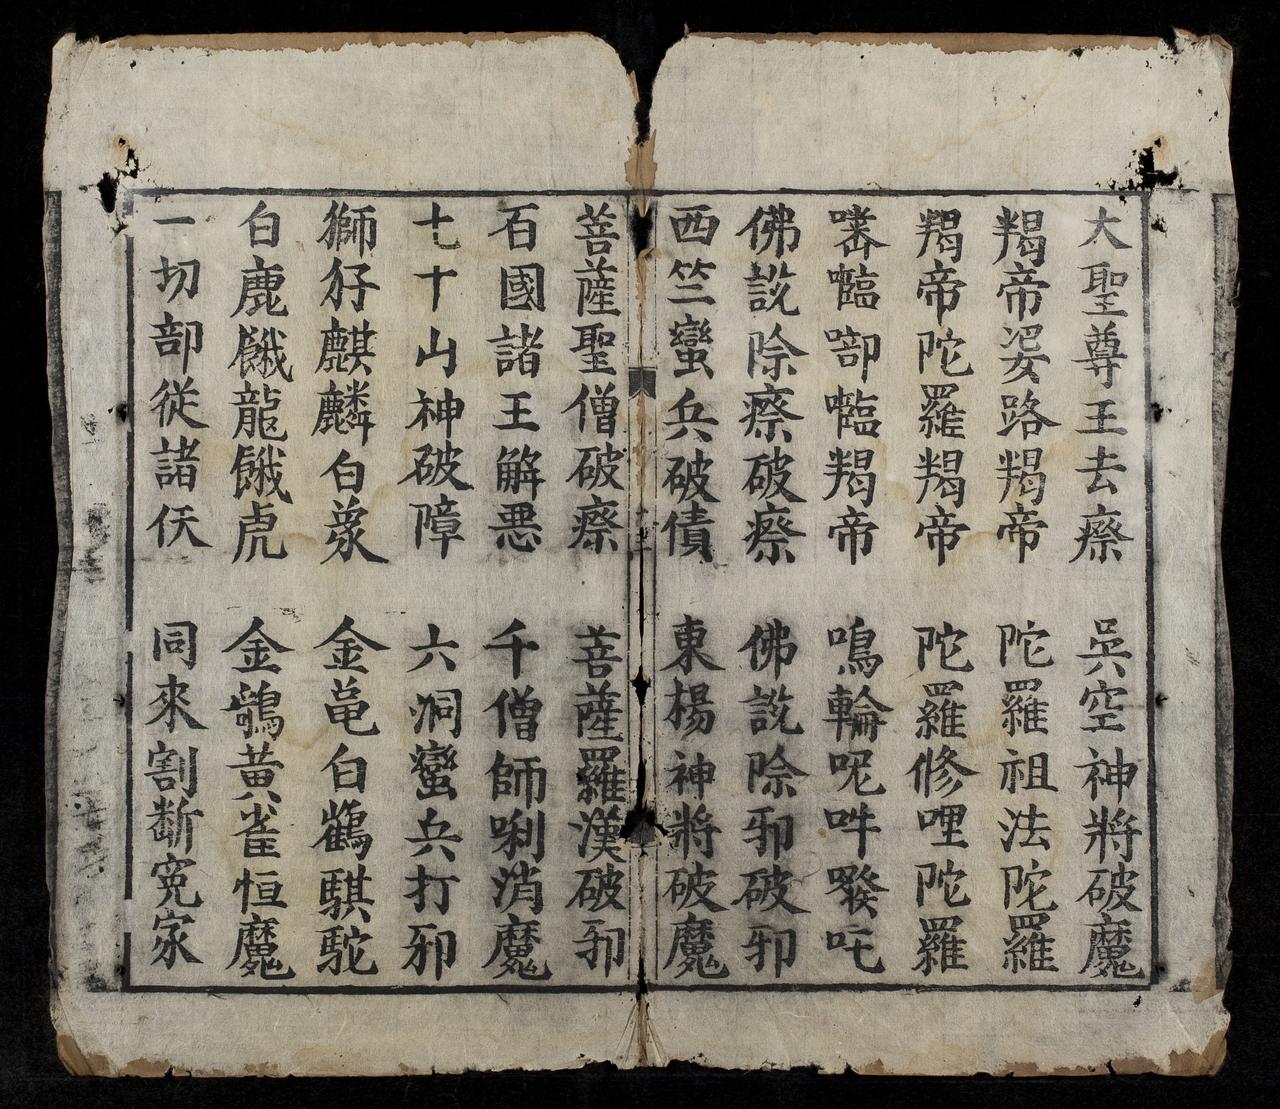 大聖尊王去瘵 吳空神將破魔
羯帝娑路羯帝 陀羅祖法陀羅
羯帝陀羅羯帝 陀羅修哩陀羅
㗭𡄯㗛𡄯羯帝 鳴輪呢吽㗼吒
佛説除瘵破瘵 佛説除邪破邪
西竺蠻兵破債 東楊神將破魔
菩薩聖僧破瘵 菩薩羅漢破邪
百國諸王解恶 千僧師唎消魔
七十山神破障 六洞蠻兵打邪
獅犼麒麟白象 金黽白鶴騏駝
白鹿餓龍餓虎 金鵠黃雀恒魔
一切部従諸仸 同來割斷寃家